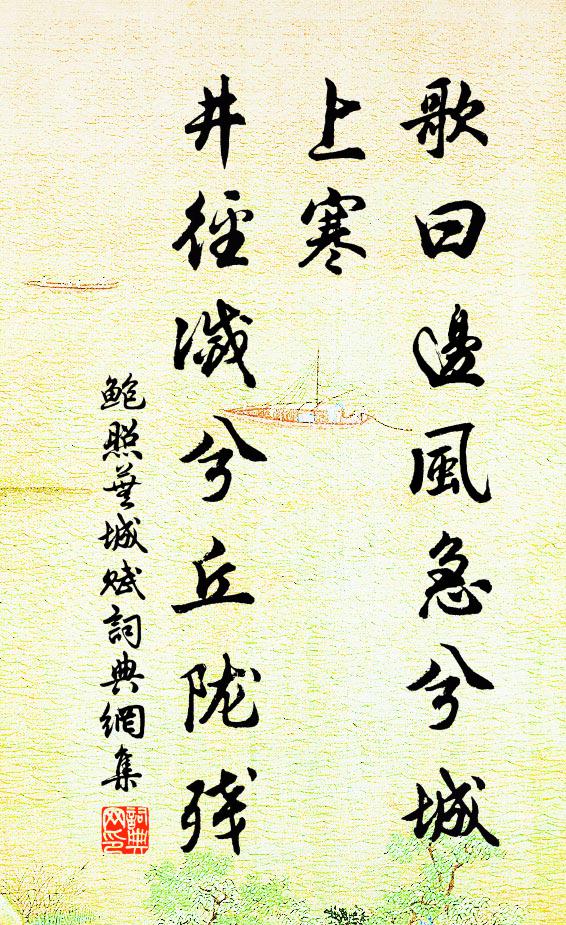 歌曰邊風急兮城
上寒
井徑滅兮丘陇残
鮑照蕪城賦詞典網集
詞典网印